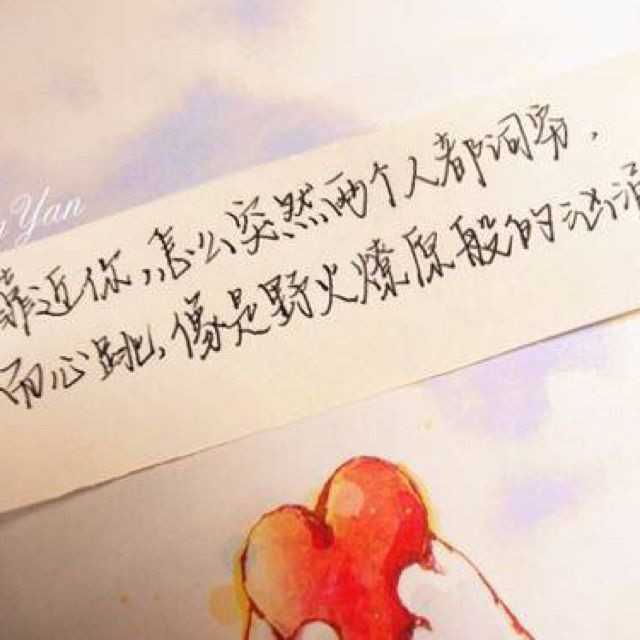 Yan
靠近你,怎么突然两个人都词穷,
而心跳,像是野火燎原般的汹涌